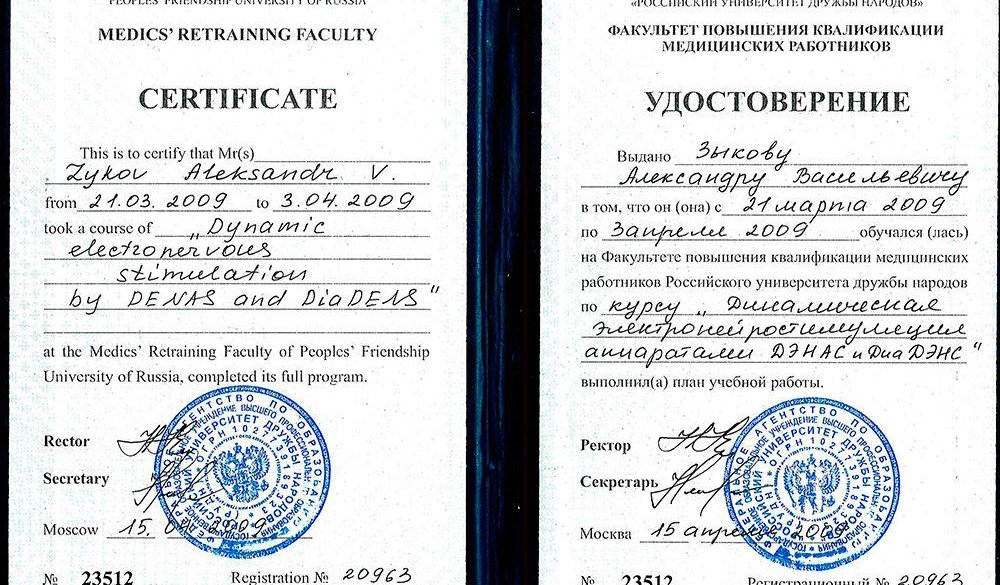 PEOPLES' FRIENDSHIP UNIVERSITY OF RUSSIA
MEDICS' RETRAINING FACULTY
CERTIFICATE
This is to certify that Mr(s)
Zykov Aleksandr V.
from 21.03.2009 to 3.04.2009
took a course of „Dynamic
electronervous
stimulation
by DENAS and DiaDENS"
at the Medics' Retraining Faculty of Peoples' Friendship
University of Russia, completed its full program.
Rector
Secretary
Moscow 15. 2009
№ 23512 Registration № 20963
«РОССИЙСКИЙ УНИВЕРСИТЕТ ДРУЖБЫ НАРОДОВ»
ФАКУЛЬТЕТ ПОВЫШЕНИЯ КВАЛИФИКАЦИИ
МЕДИЦИНСКИХ РАБОТНИКОВ
УДОСТОВЕРЕНИЕ
Выдано Зыкову
Александру Васильевичу
в том, что он (она) с 21 марта 2009
по 3 апреля 2009 обучался (лась)
на Факультете повышения квалификации медицинских
работников Российского университета дружбы народов
по курсу „Динамическая
электронейростимуляция
аппаратами ДЭНАС и ДиаДЭНС"
выполнил(а) план учебной работы.
Ректор
Секретарь
Москва 15 апреля 2009
№ 23512 Регистрационный № 20963